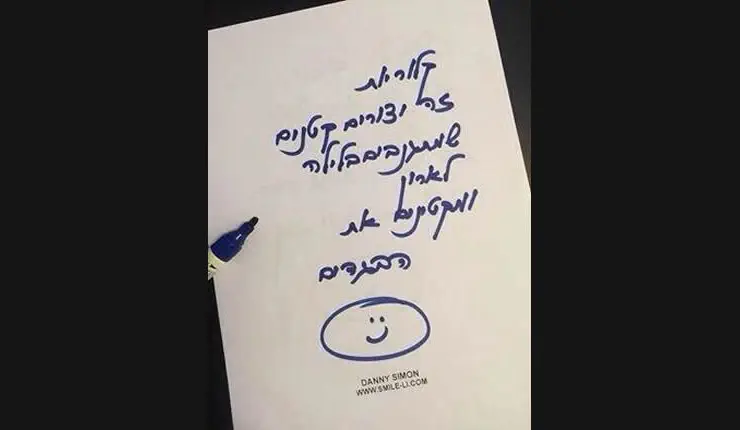 קלוריות
זה יצורים קטנים
שמתגנבים בלילה
לארון
ומקטינים את
הבגדים
DANNY SIMON
WWW.SMILE-LI.COM